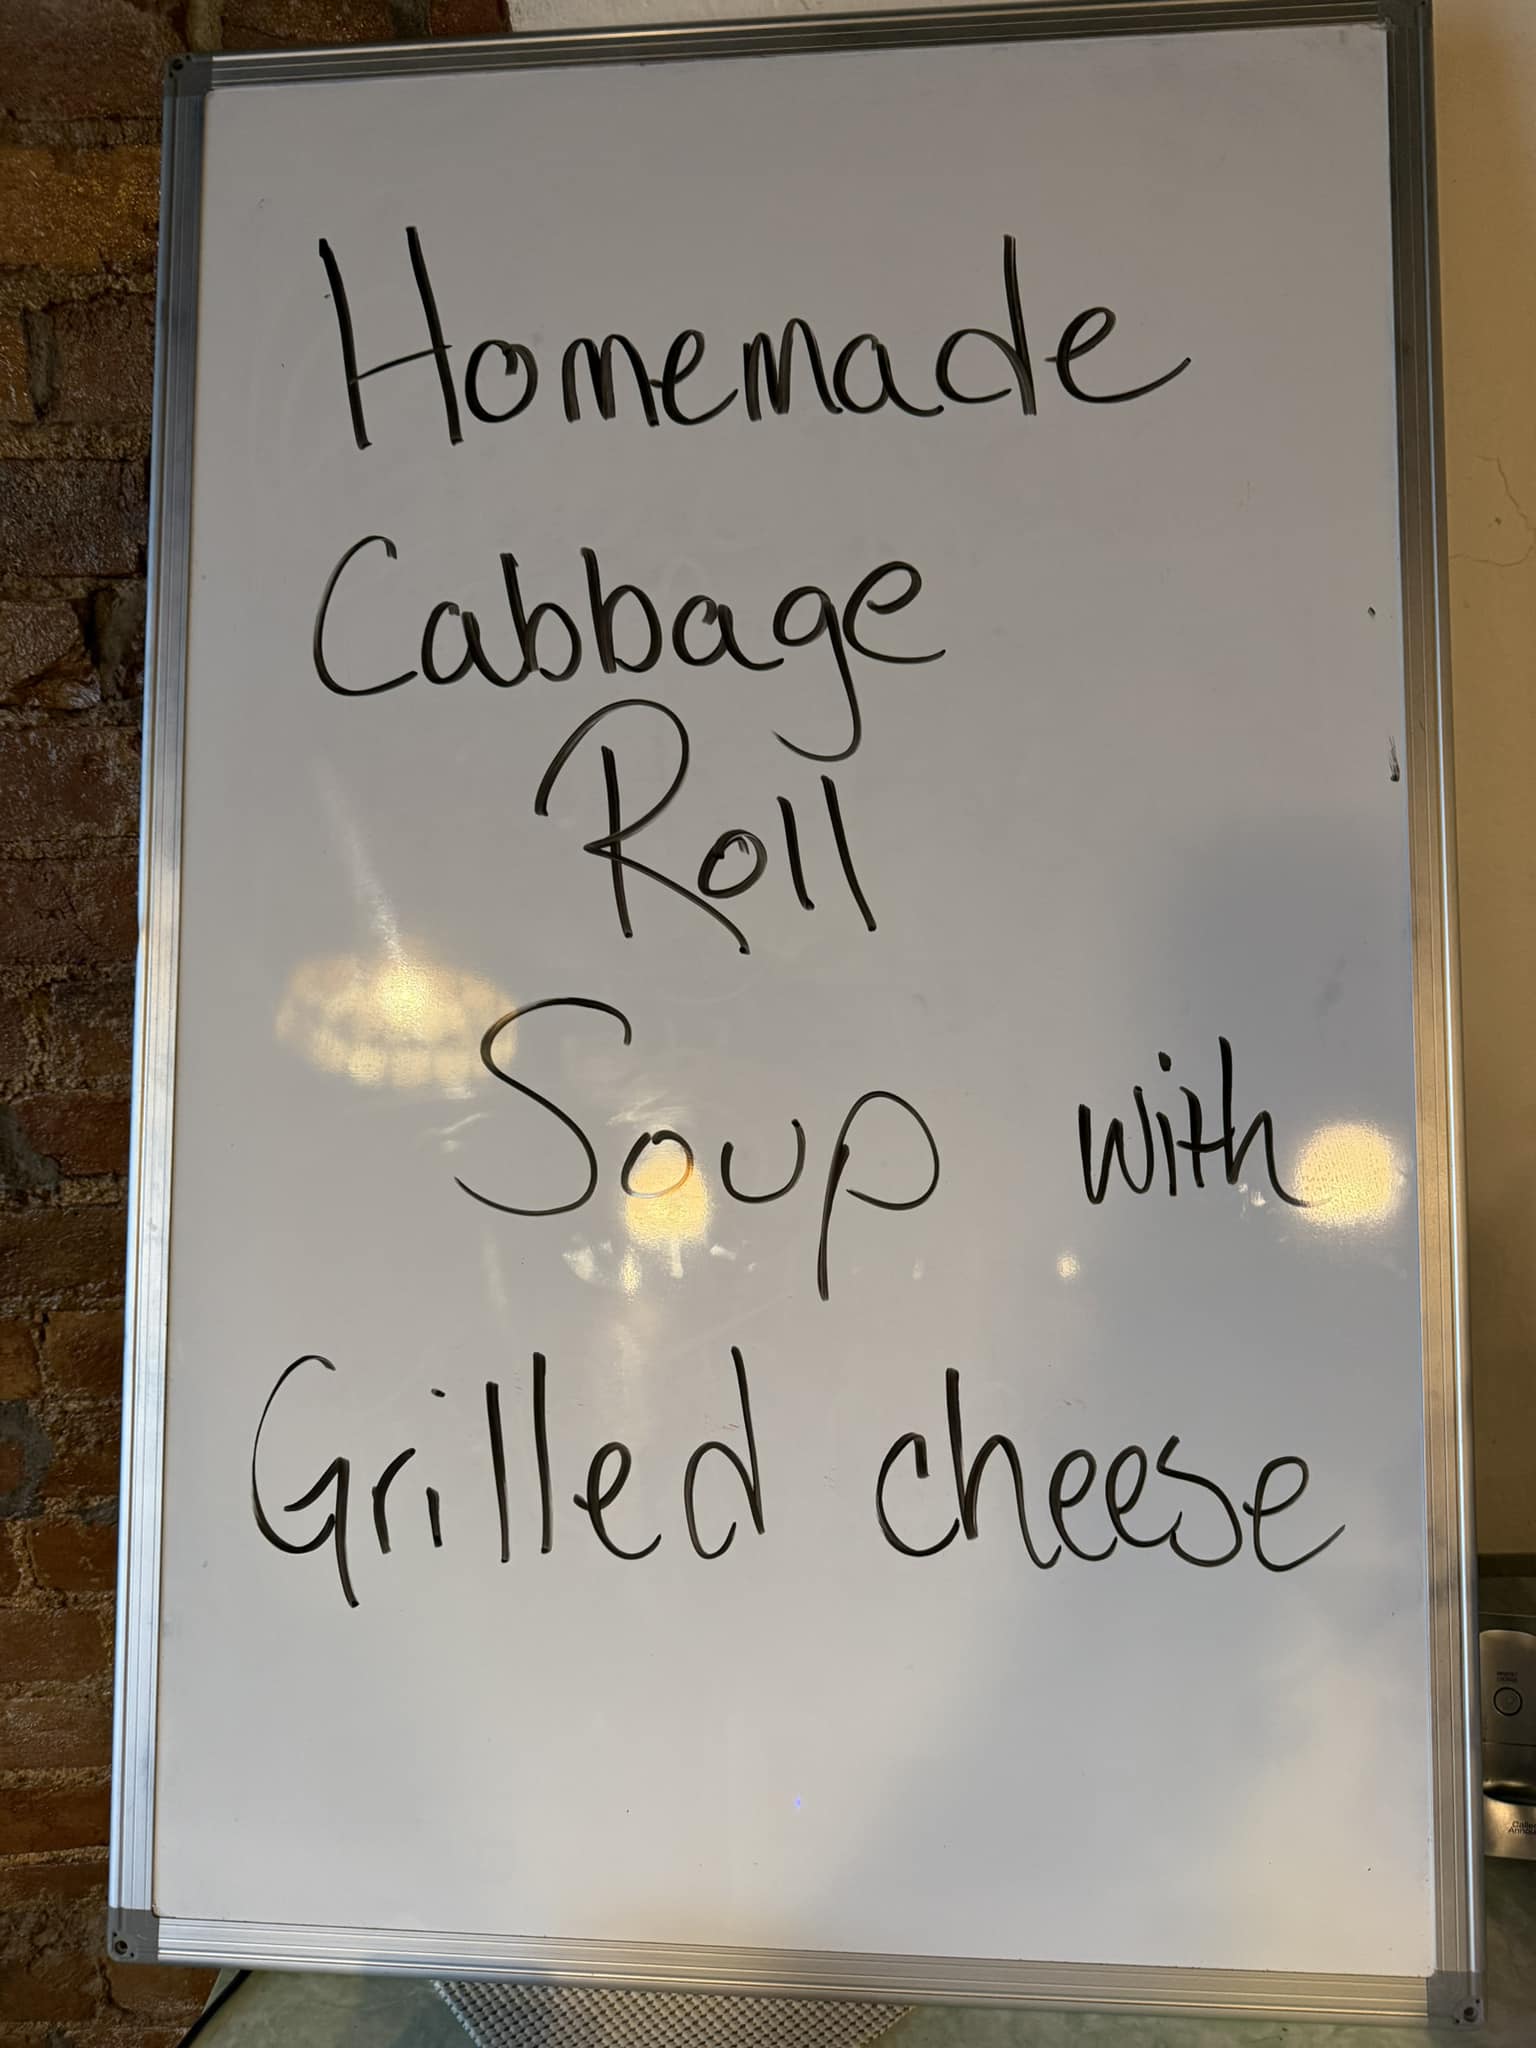 Homemade
Cabbage
Roll
Soup with
Grilled cheese